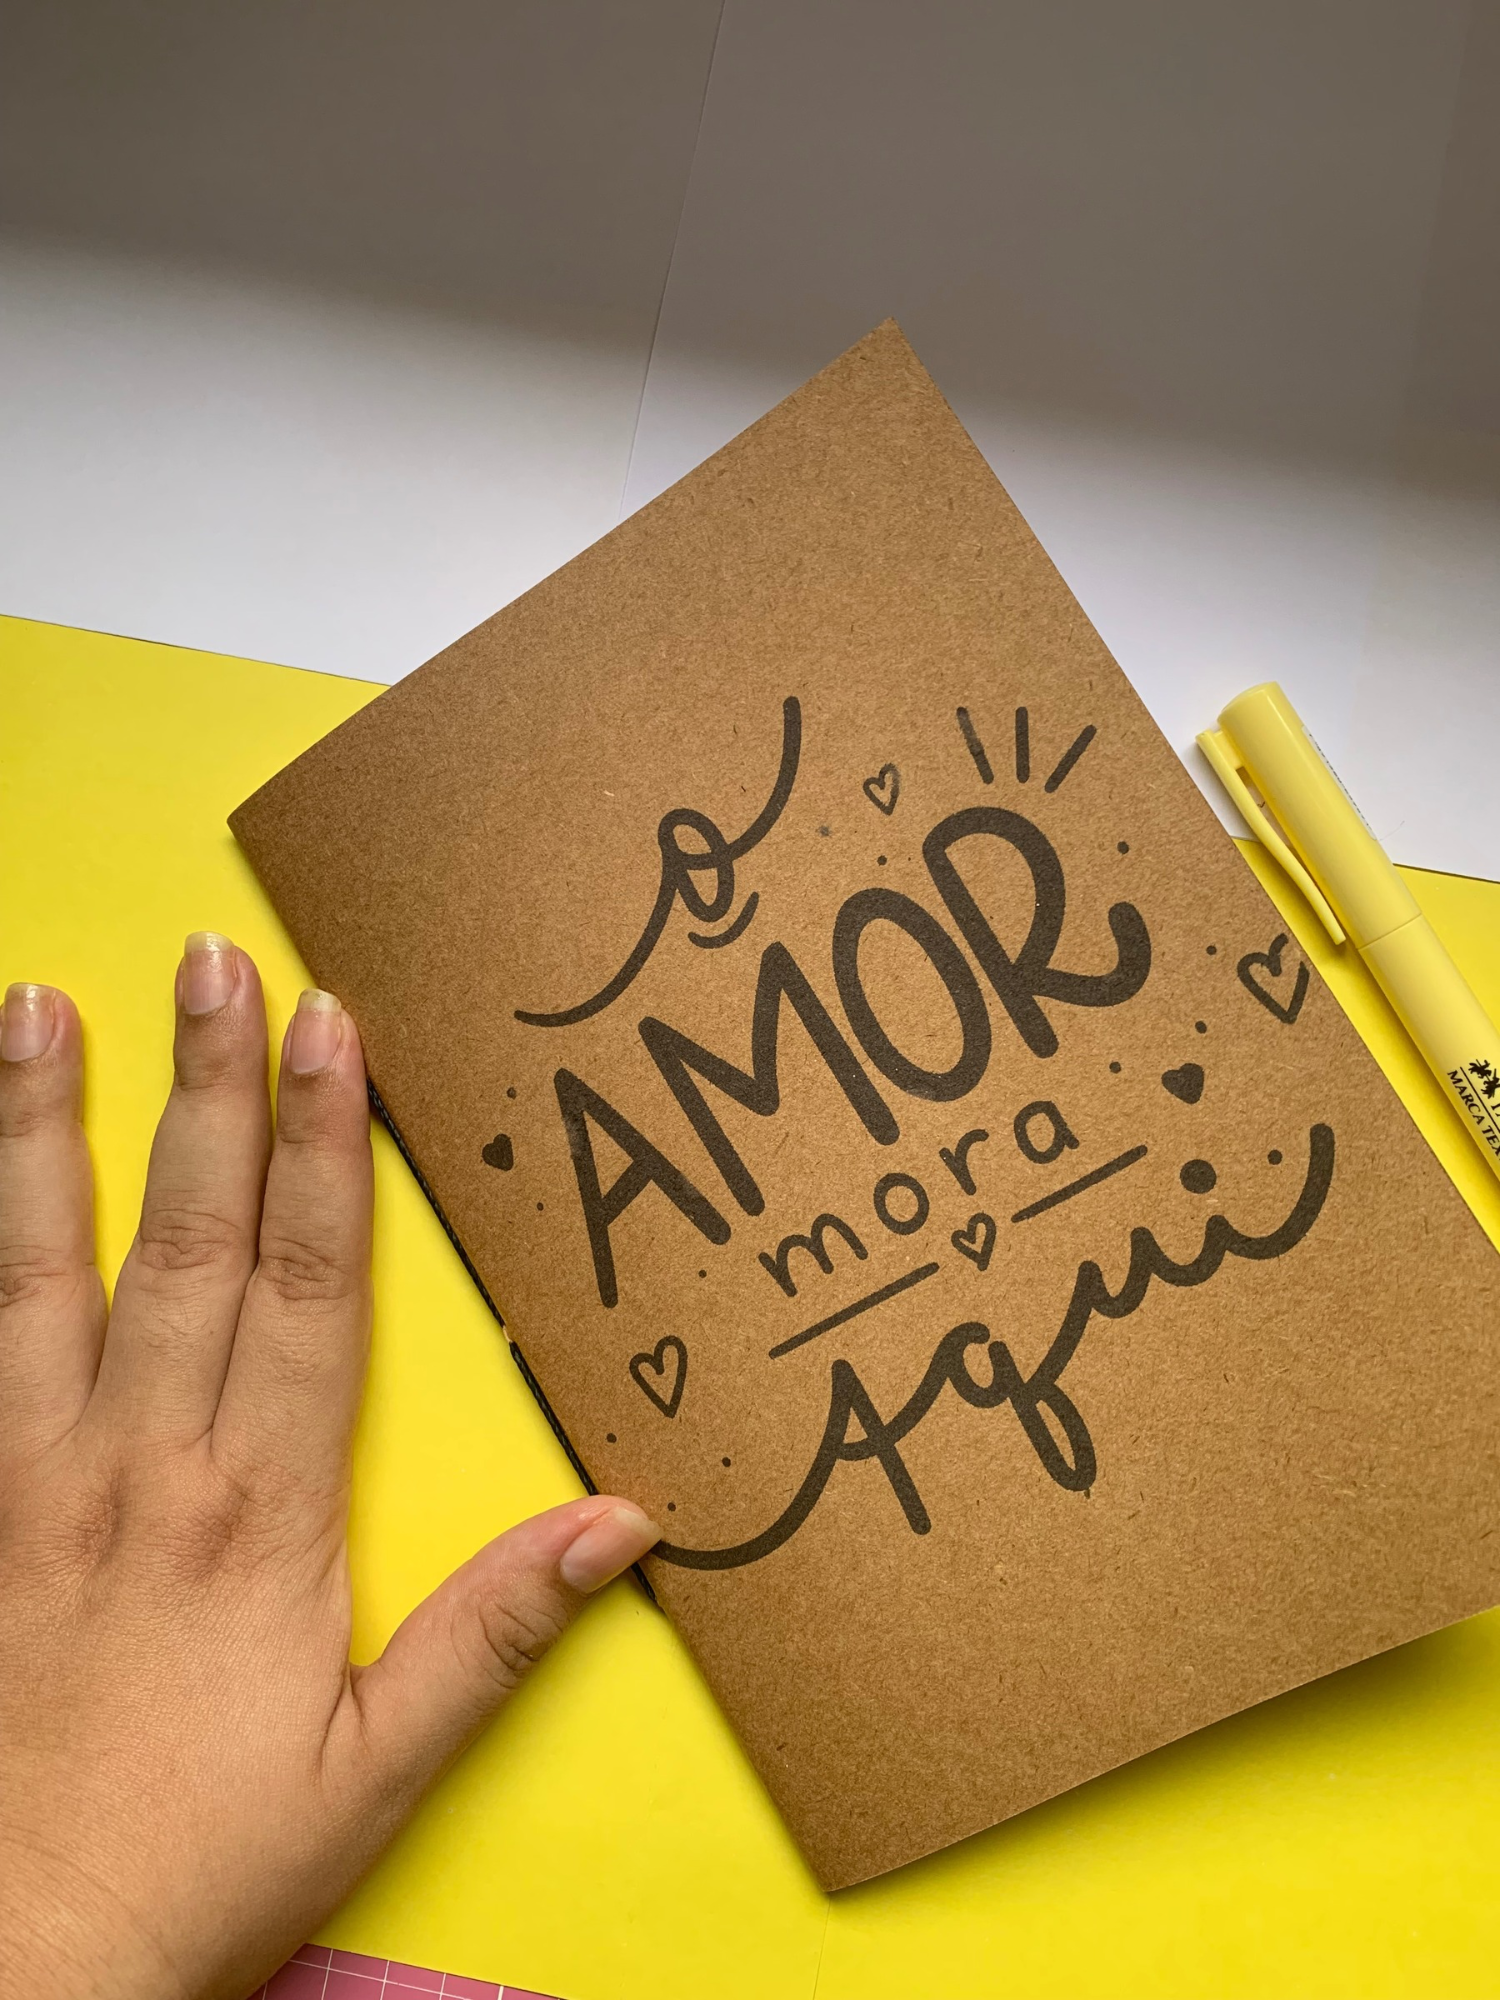 o
AMOR
mora
Aqui
MARCA TEX